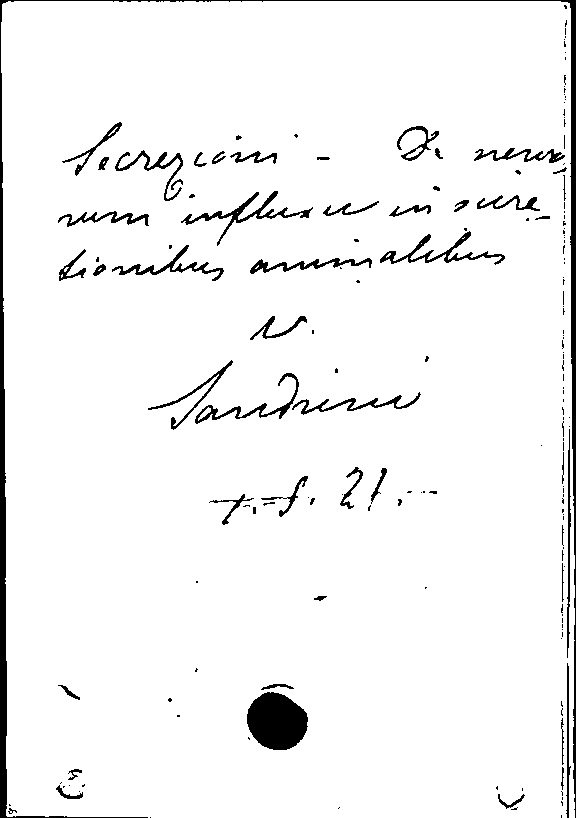 Secrezioni - De nervo-
rum influxu in secre-
tionibus animalibus
v.
Sandrini
f. 21.